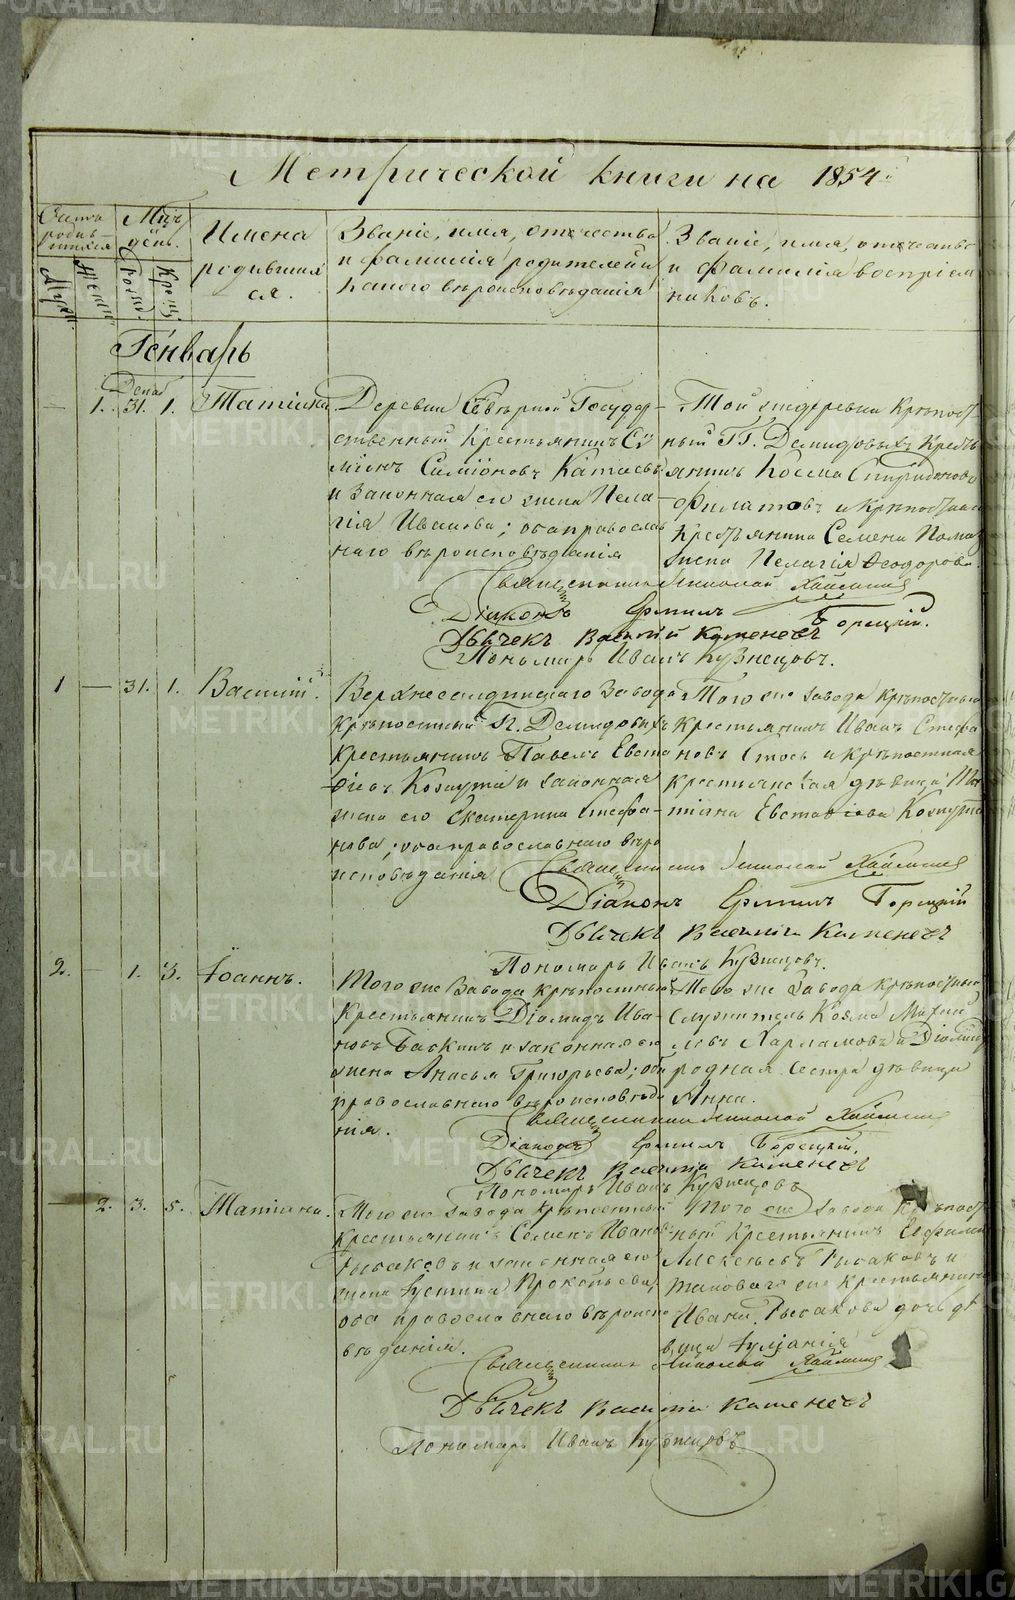 Метрической книги на 1854й
Счетъ родив-шихся
Муж.
Женс.
Мцъ и день.
Рожд.
Крещ.
Имена родившихся.
Званіе, имя, отчество и фамилія родителей и какого вѣроисповѣданія
Званіе, имя, отчество и фамилія воспріемниковъ.
Генварь
Декаб
— 1. 31. 1. Татіана.
Деревни Сѣверной Государ-
ственный Крестьянинъ
Симіоновъ Катаевъ
и законная его жена Пела-
гія Иванова; оба православ
наго вѣроисповѣданія
Той же деревни Крѣпост
ный Гг. Демидовыхъ Кресть
янинъ Косма Спиридоновъ
Филатовъ и Крѣпостнаго
Крестьянина Семена
жена Пелагія Ѳеодорова.
Священникъ Николай
Діаконъ Ермилъ Борецкій.
Дьячекъ Василій Каменевъ
Пономарь Иванъ Кузнецовъ.
1 — 31. 1. Василій.
Верхнесалдинскаго Завода
Крѣпостный Гг. Демидовыхъ
Крестьянинъ Павелъ Евста
фіевъ и законная
жена его Екатерина Стефа-
нова; оба православнаго вѣро
исповѣданія
Того же завода Крѣпостный
Крестьянинъ Иванъ Стефа
новъ и Крѣпостная
крестьянская дѣвица Та
тіана Евстафіева
Священникъ Николай
Діаконъ Ермилъ Борецкій
Дьячекъ Василій Каменевъ
Пономарь Иванъ Кузнецовъ.
2. — 1. 3. Іоаннъ.
Того же Завода крѣпостный
Крестьянинъ Діомидъ Ива-
новъ и законная его
жена Григорьева; оба
православнаго вѣроисповѣда
нія.
Того же Завода Крѣпостный
Служитель Косма Михаи
ловъ Харламовъ и
родная сестра дѣвица
Анна.
Священникъ Николай
Діаконъ Ермилъ Борецкій.
Дьячекъ Василій Каменевъ
Пономарь Иванъ Кузнецовъ
— 2. 3. 5. Татіана.
Того же завода крѣпостный
Крестьянинъ Семенъ Иванов
Рыбаковъ и законная его
жена Іустина Прокопьева;
оба православнаго вѣроиспо
вѣданія.
Того же завода Крѣпост
ный Крестьянинъ
Алексѣевъ Рыбаковъ и
таковаго же крестьянина
Ивана Рыбакова дочь дѣ
вица Іуліанія
Священникъ Николай
Дьячекъ Василій Каменевъ
Пономарь Иванъ Кузнецовъ
METRIKI.GASO-URAL.RU